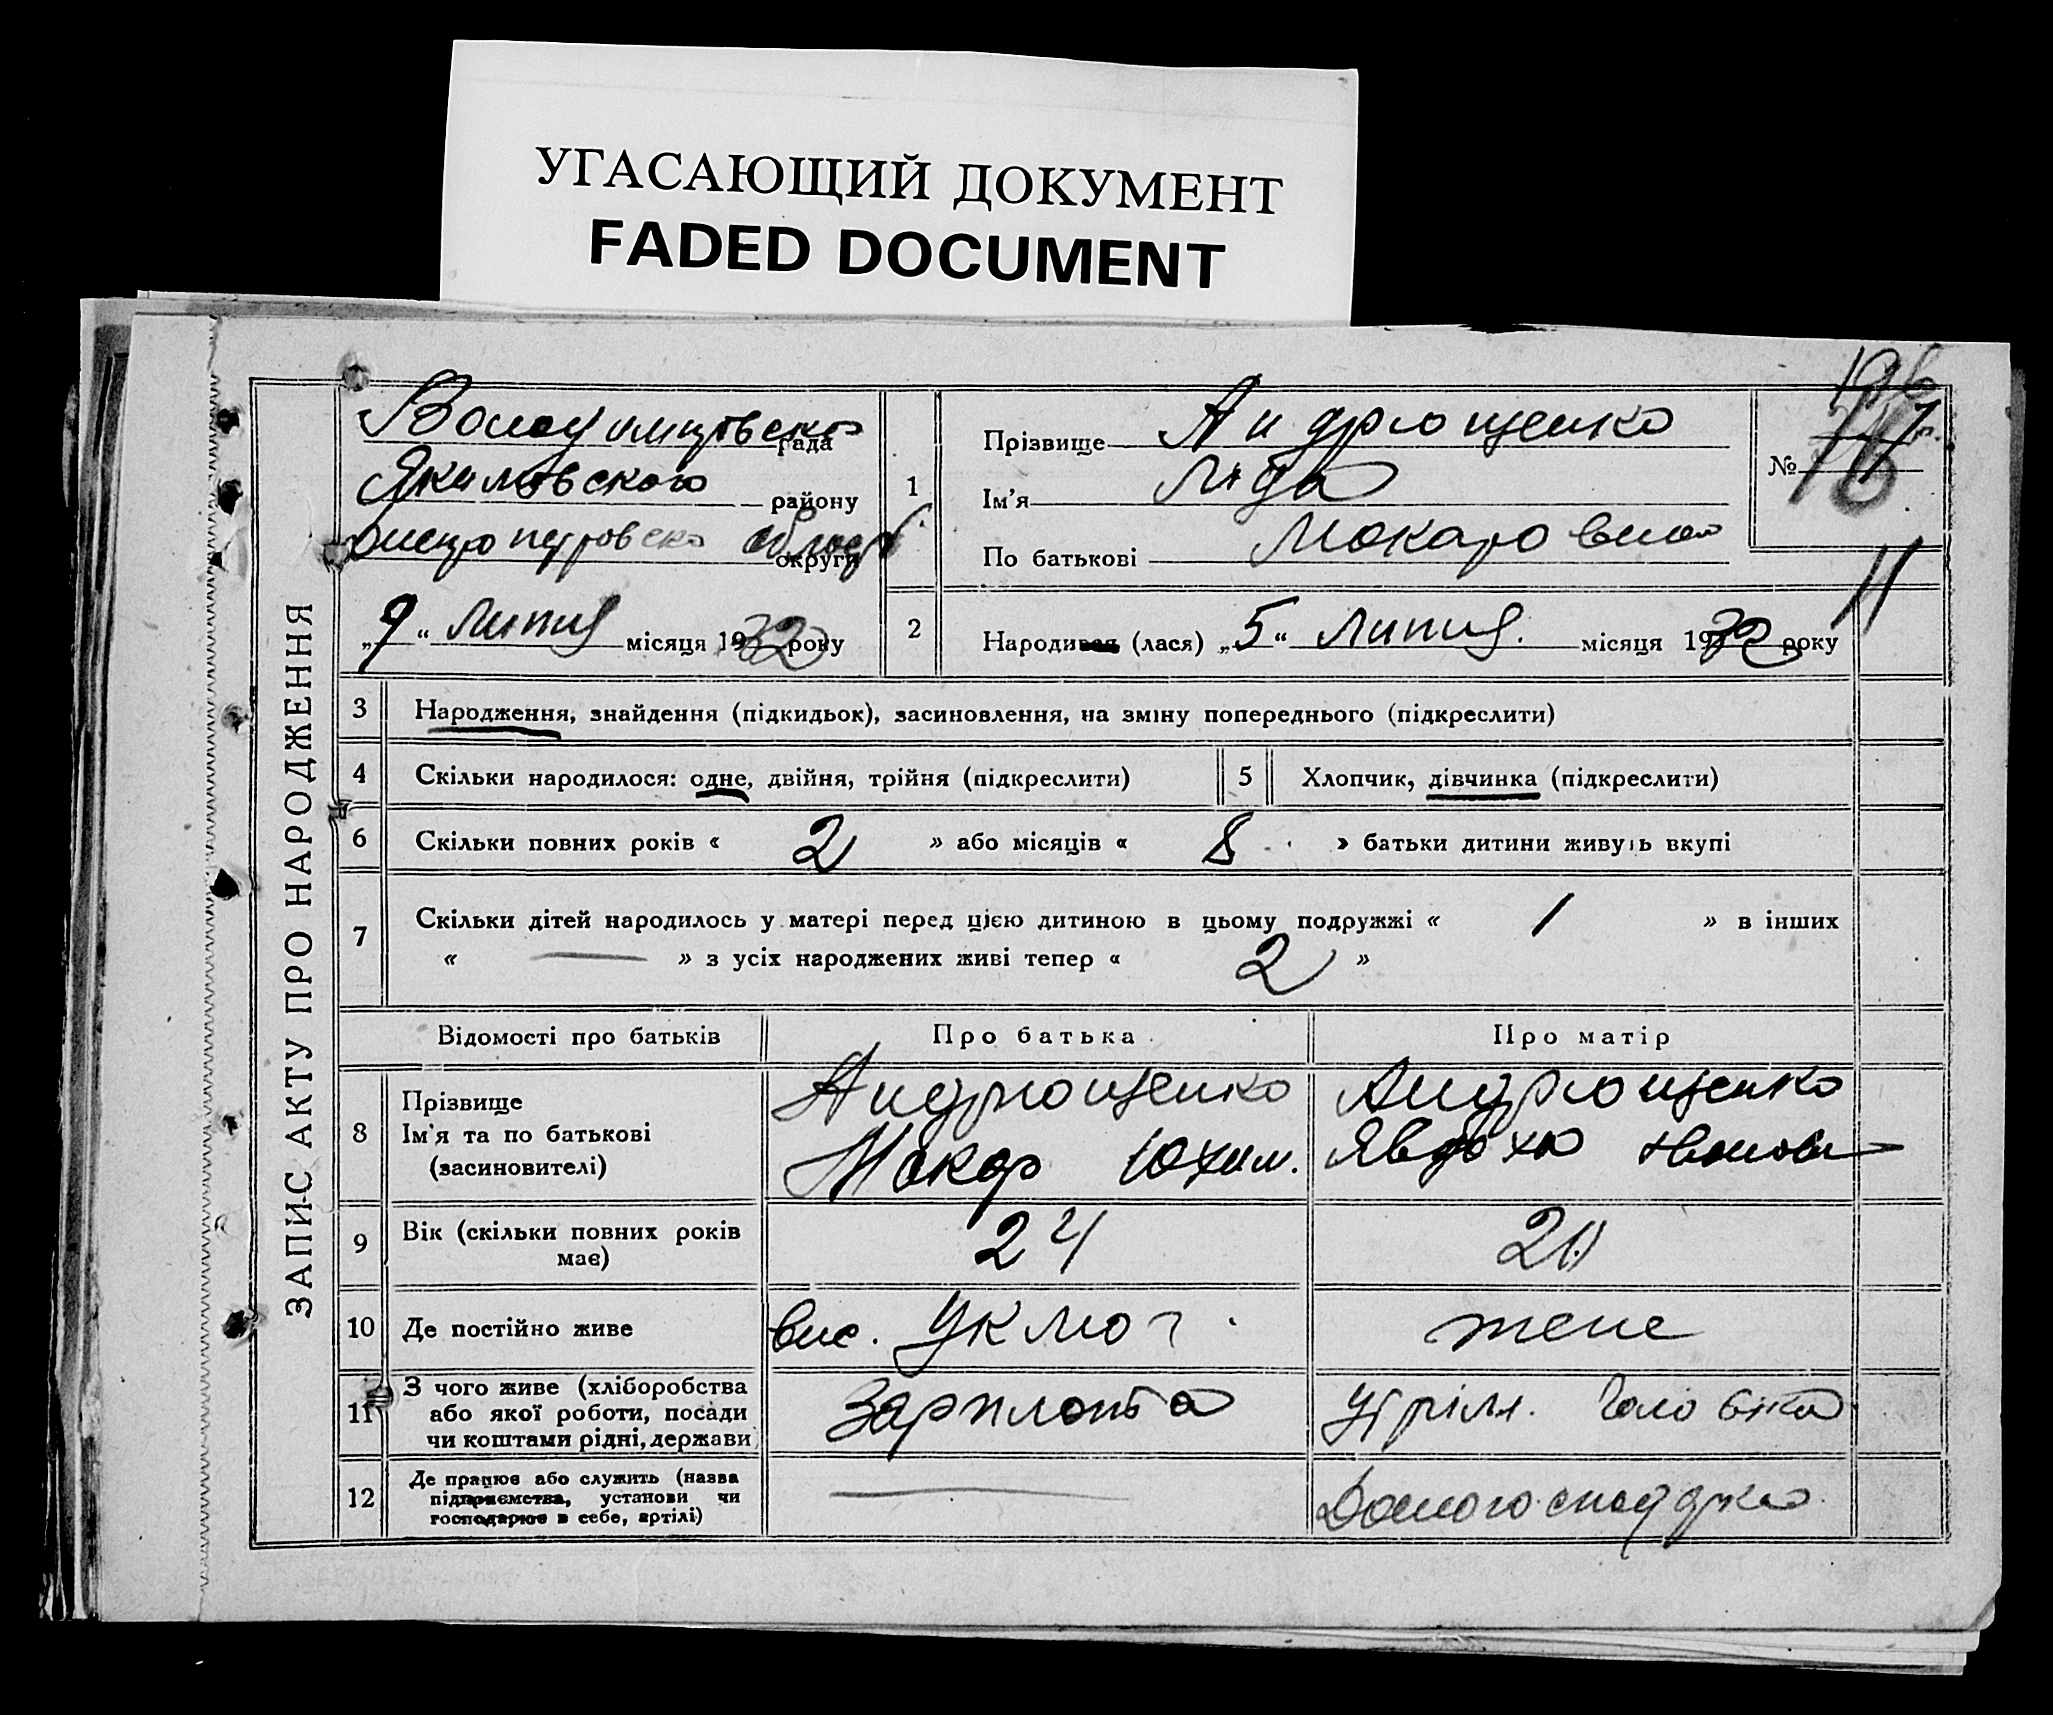 УГАСАЮЩИЙ ДОКУМЕНТ
FADED DOCUMENT
ЗАПИС АКТУ ПРО НАРОДЖЕННЯ
рада
району
округи
„9“ Липня місяця 1932 року
1
Прізвище Андрющенко
Ім'я Ліда
По батькові Макаровна
№
2
Народився (лася) „5“ Липня. місяця 1932 року
3 Народження, знайдення (підкидьок), засиновлення, на зміну попереднього (підкреслити)
4 Скільки народилося: одне, двійня, трійня (підкреслити)
5 Хлопчик, дівчинка (підкреслити)
6 Скільки повних років « 2 » або місяців « 8 » батьки дитини живуть вкупі
7 Скільки дітей народилось у матері перед цією дитиною в цьому подружжі « 1 » в інших
« — » з усіх народжених живі тепер « 2 »
Відомості про батьків Про батька Про матір
8 Прізвище Андрющенко Андрющенко
Ім'я та по батькові Макар Юхим. Явдоха
(засиновителі)
9 Вік (скільки повних років 24 20
має)
10 Де постійно живе тене
11 З чого живе (хліборобства Зарплота Утріля. Чоловіка
або якої роботи, посади
чи коштами рідні, держави)
12 Де працює або служить (назва — Домогосподарка
підприємства, установи чи
господарює в себе, артілі)